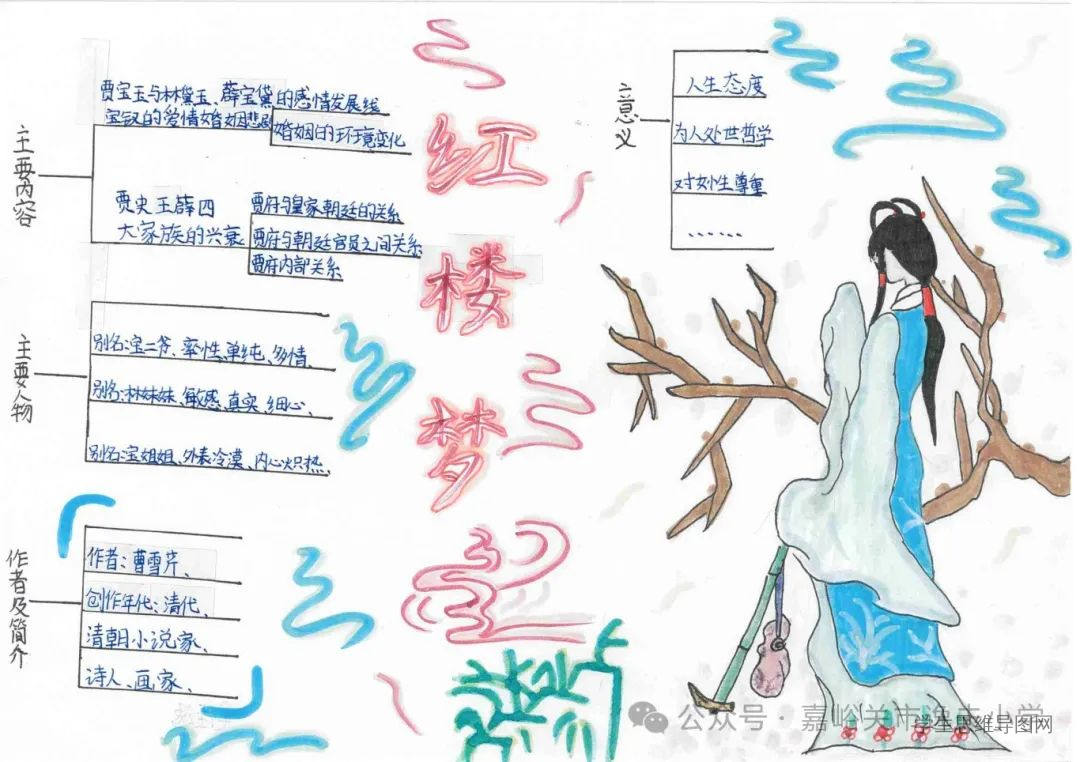 红楼梦
主要内容
贾宝玉与林黛玉、薛宝钗的爱情婚姻悲剧
宝黛的感情发展线
婚姻的环境变化
贾史王薛四
大家族的兴衰
贾府与皇家朝廷的关系
贾府与朝廷官员之间关系
贾府内部关系
主要人物
别名:宝二爷、率性、单纯、多情、
别名:林妹妹、敏感、真实、细心、
别名:宝姐姐、外表冷漠、内心炽热、
作者及简介
作者:曹雪芹、
创作年代:清代、
清朝小说家、
诗人、画家、
主意义
人生态度
为人处世哲学
对女性尊重
……
公众号·嘉峪关市逸夫小学
学生思维导图网